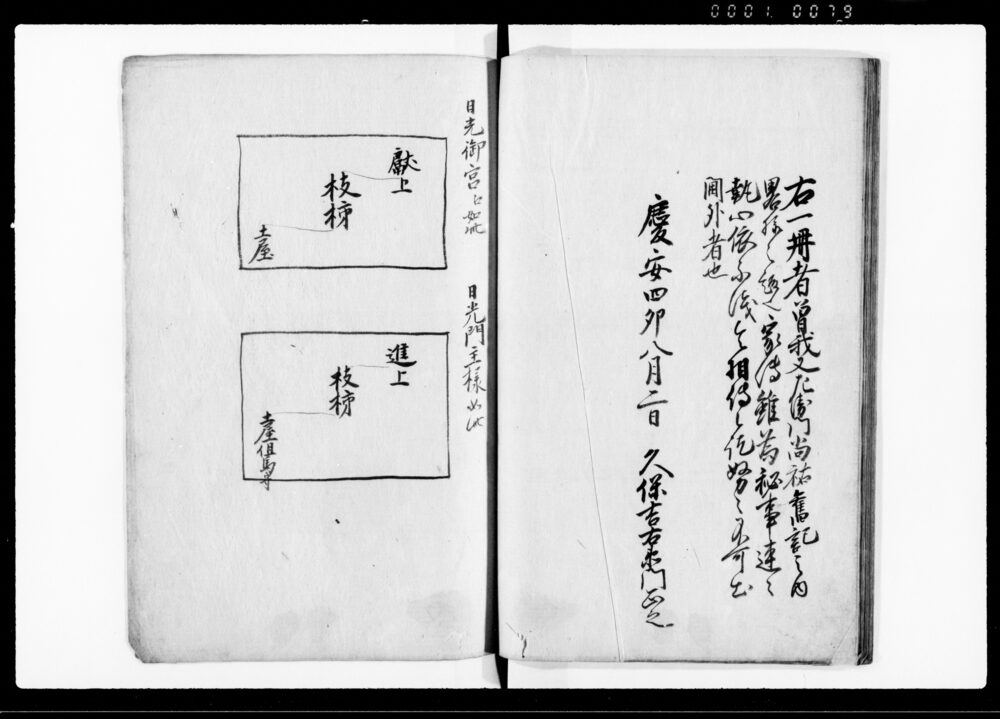 0001 0079
右一冊者曽我又左衛門尚祐舊記之内
畧
家傳雖為秘事連々
執心依不浅令相傳之訖努々不可出
閫外者也
慶安四卯八月二日 久保吉右衛門正之
日光御宮上如此
献上
枝柿
土屋
日光門主様如此
進上
枝柿
土屋但馬守